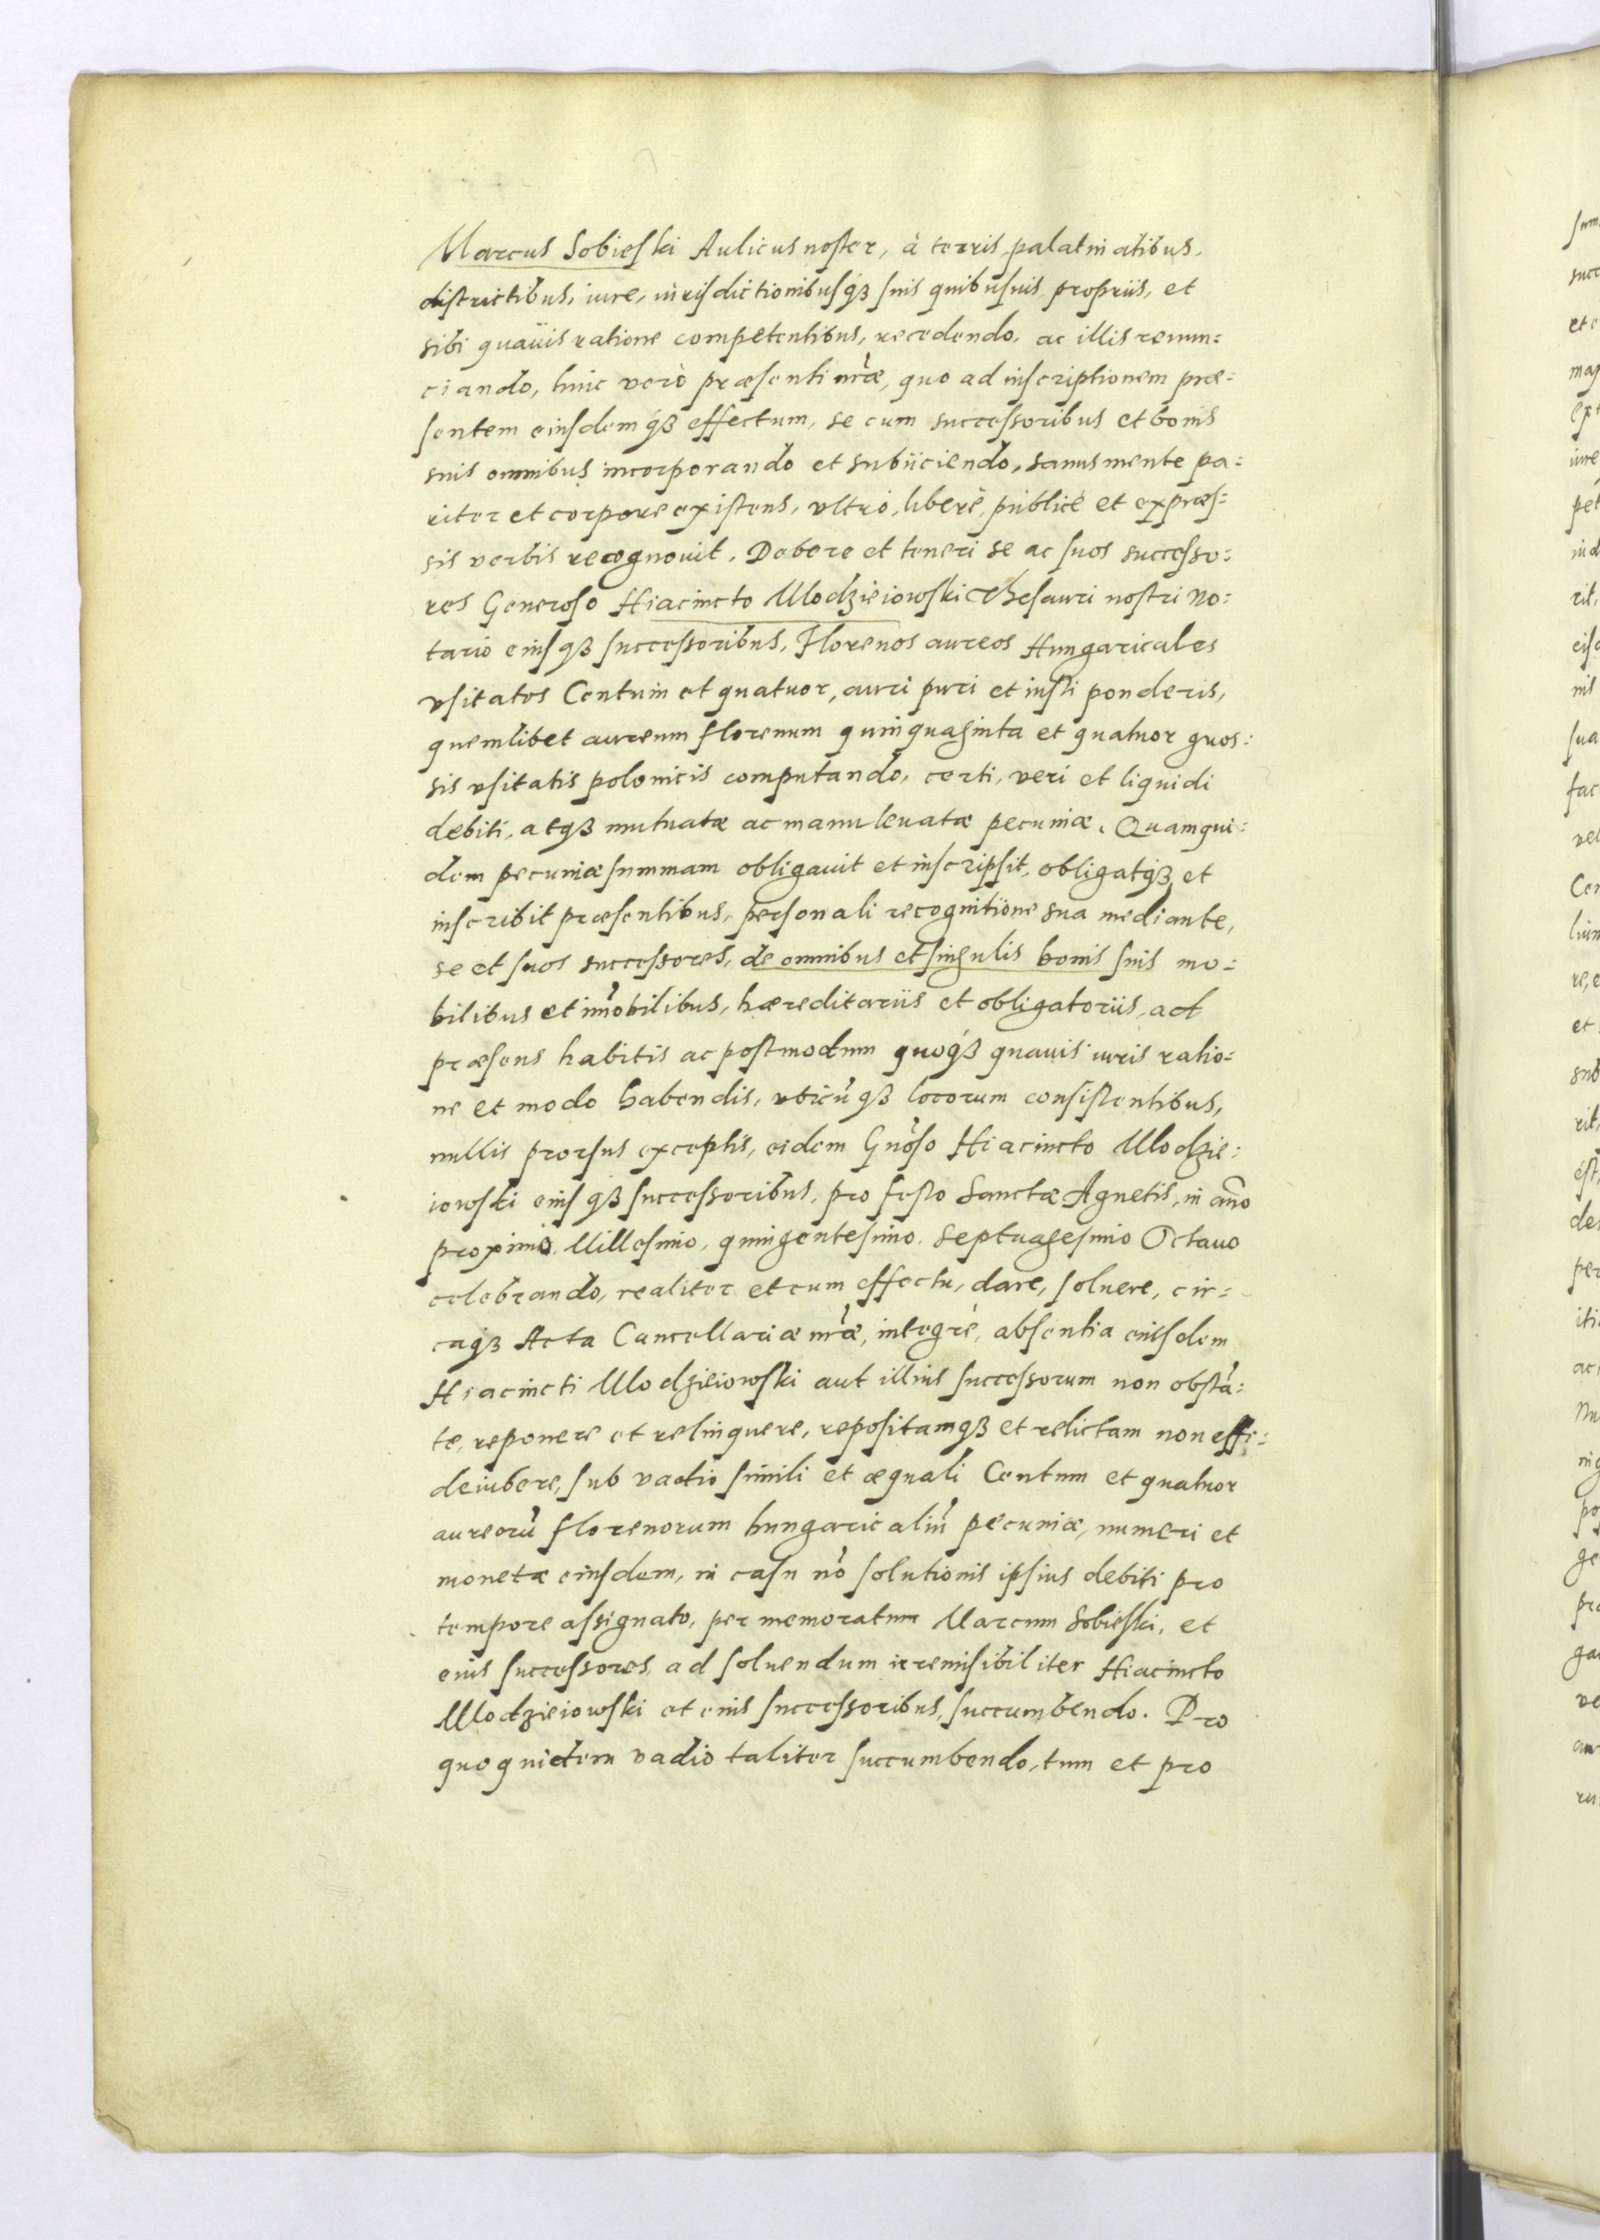 Marcus Sobieski Aulicus noster, à terris, palatinatibus,
districtibus, iure, iurisdictionibusq̃ suis quibusuis proprijs, et
sibi quauis ratione competentibus, recedendo, ac illis renun=
ciando, huic verò præsenti nr̃æ, quo ad inscriptionem præ=
sentem eiusdemq̃ effectum, se cum successoribus et bonis
suis omnibus incorporando et subijciendo, sanus mente pa=
riter et corpore existens, vltrò, liberè, publicè et expres=
sis verbis recognouit. Debere et teneri se ac suos successo=
res Generoso Hiacincto Mlodzieiowski Thesauri nostri No=
tario eiusq̃ successoribus, Florenos aureos Hungaricales
vsitatos Centum et quatuor, auri puri et iusti ponderis,
quemlibet aureum florenum quinquaginta et quatuor gros=
sis vsitatis polonicis computando, certi, veri et liquidi
debiti, atq̃ mutuatæ ac manuleuatæ pecuniæ. Quamqui=
dem pecuniæ summam obligauit et inscripsit, obligatq̃ et
inscribit præsentibus, personali recognitione sua mediante,
se et suos successores, de omnibus et singulis bonis suis mo=
bilibus et im̃obilibus, hæreditarijs et obligatorijs, ad
præsens habitis ac postmodum quoq̃ quauis iuris ratio=
ne et modo habendis, vbicũq̃ locorum consistentibus,
nullis prorsus exceptis, eidem Gnõso Hiacincto Mlodzie=
iowski eiusq̃ successoribus, pro festo Sanctæ Agnetis, in año
proximo Millesimo, quingentesimo, septuagesimo Octauo
celebrando, realiter et cum effectu, dare, soluere, cir=
caq̃ Acta Cancellariæ nr̃æ, integrè, absentia eiusdem
Hiacincti Mlodzieiowski aut illius successorum non obstã=
te, reponere et relinquere, repositamq̃ et relictam non effi=
deiubere, sub vadio simili et æquali Centum et quatuor
aureorũ florenorum hungaricaliũ pecuniæ, numeri et
monetæ eiusdem, in casu nõ solutionis ipsius debiti pro
tempore assignato, per memoratum Marcum Sobieski, et
eius successores ad soluendum irremisibiliter Hiacincto
Mlodzieiowski et eius successoribus, succumbendo. Pro
quo quidem vadio taliter succumbendo, tum et pro